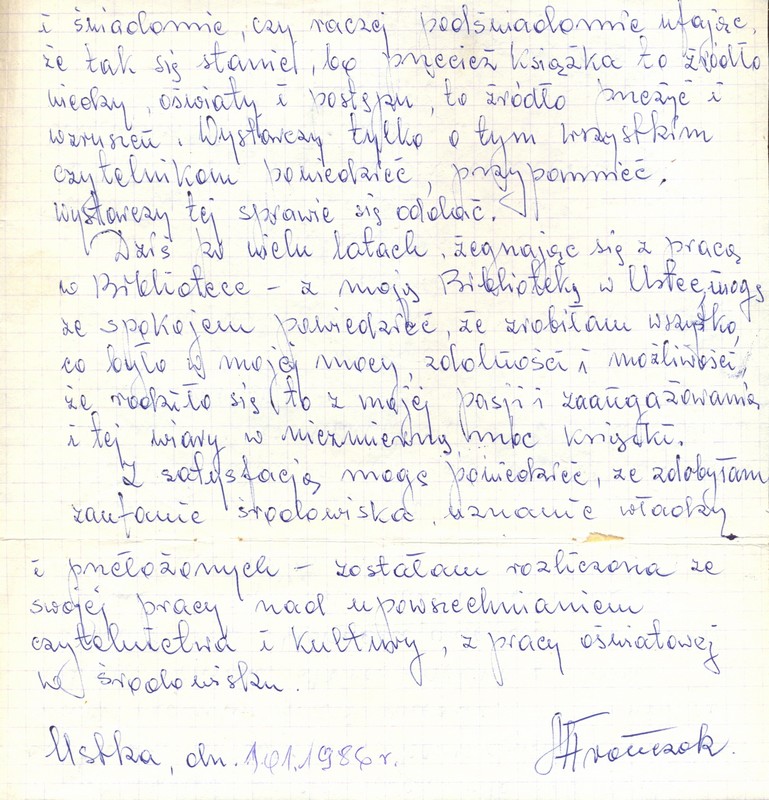 i świadomie, czy raczej podświadomie ufając,
że tak się stanie, bo przecież książka to źródło
wiedzy, oświaty i postępu, to źródło przeżyć i
wzruszeń. Wystarczy tylko o tym wszystkim
czytelnikom powiedzieć, przypomnieć,
wystarczy tej sprawie się oddać.
Dziś po wielu latach, żegnając się z pracą
w Bibliotece – z moją Biblioteką w Ustce, mogę
ze spokojem powiedzieć, że zrobiłam wszystko,
co było w mojej mocy, zdolności i możliwości,
że rodziło się to z mojej pasji i zaangażowania
i tej wiary w niezmienną moc książki.
Z satysfacją mogę powiedzieć, że zdobyłam
zaufanie środowiska, uznanie władzy
i przełożonych – zostałam rozliczona ze
swojej pracy nad upowszechnianiem
czytelnictwa i kultury, z pracy oświatowej
w środowisku.
Ustka, dn. 1986 r.